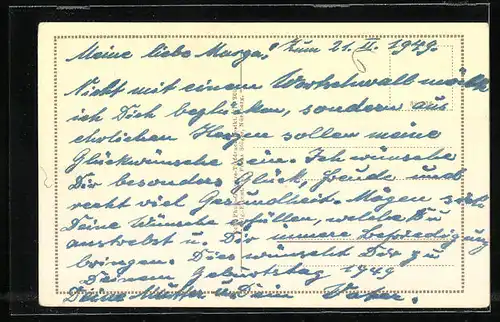 Meine liebe Marga! Zum 21. II. 1949.
Nicht mit einem Wortschwall möcht
ich Dich beglücken, sondern aus
ehrlichen Herzen sollen meine
Glückwünsche sein. Ich wünsche
Dir besonders Glück, Freude und
recht viel Gesundheit. Mögen sich
Deine Wünsche erfüllen, welche Du
anstrebst u. Dir innere Befriedigung
bringen. Dies wünscht Dir zu
Deinem Geburtstag 1949
Deine Mutter u. Dein Vater.